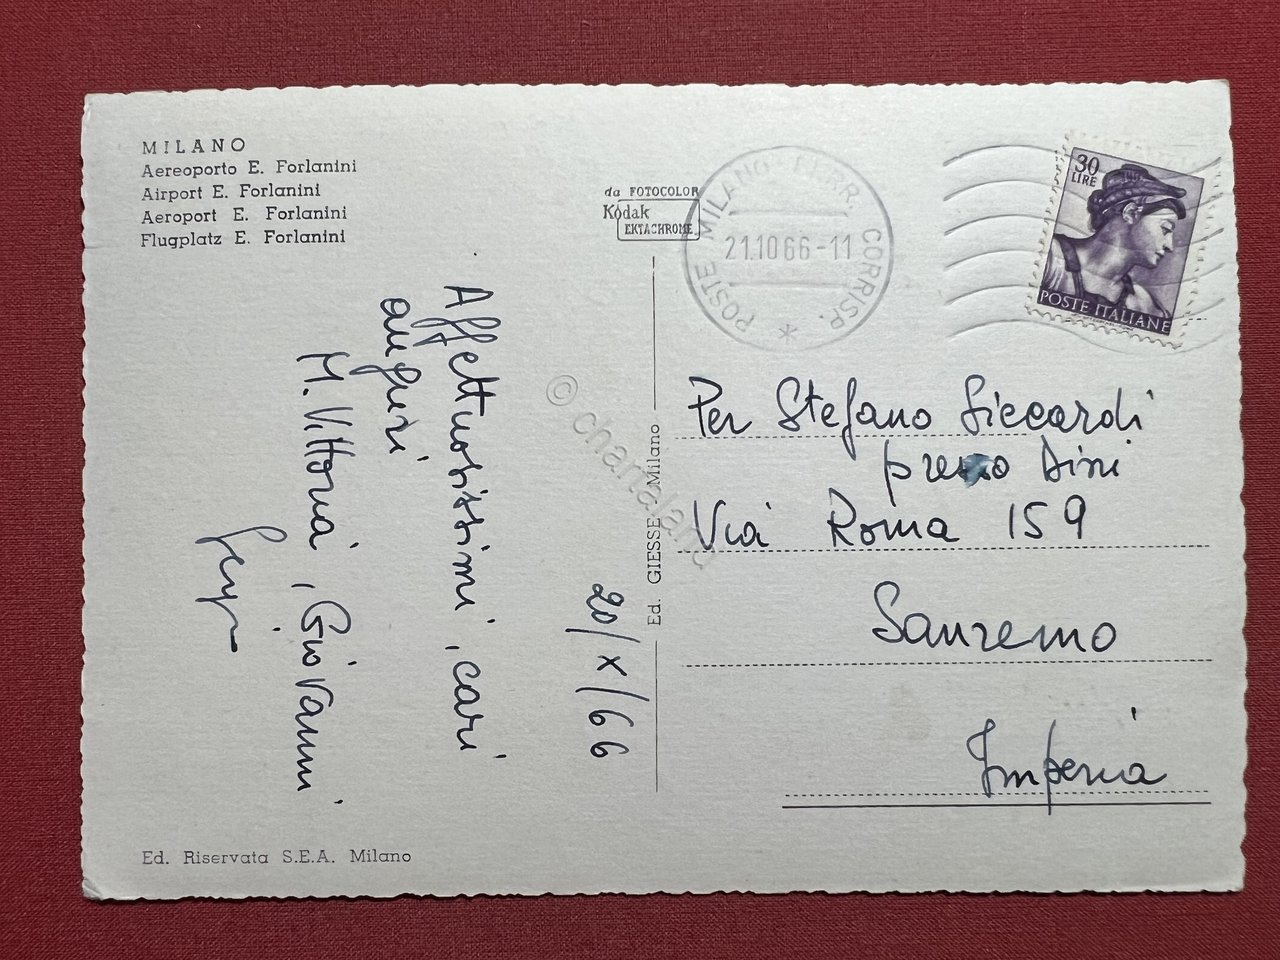 MILANO
Aereoporto E. Forlanini
Airport E. Forlanini
Aeroport E. Forlanini
Flugplatz E. Forlanini
da FOTOCOLOR
Kodak
EKTACHROME
POSTE MILANO FERR. CORRISP. *
21.10 66-11
30
LIRE
POSTE ITALIANE
20/X/66
Affettuosissimi, cari
auguri
M. Vittoria, Giovanni
Ed. GIESSE - Milano
Per Stefano Siccardi
presso Dini
Via Roma 159
Sanremo
Imperia
Ed. Riservata S.E.A. Milano